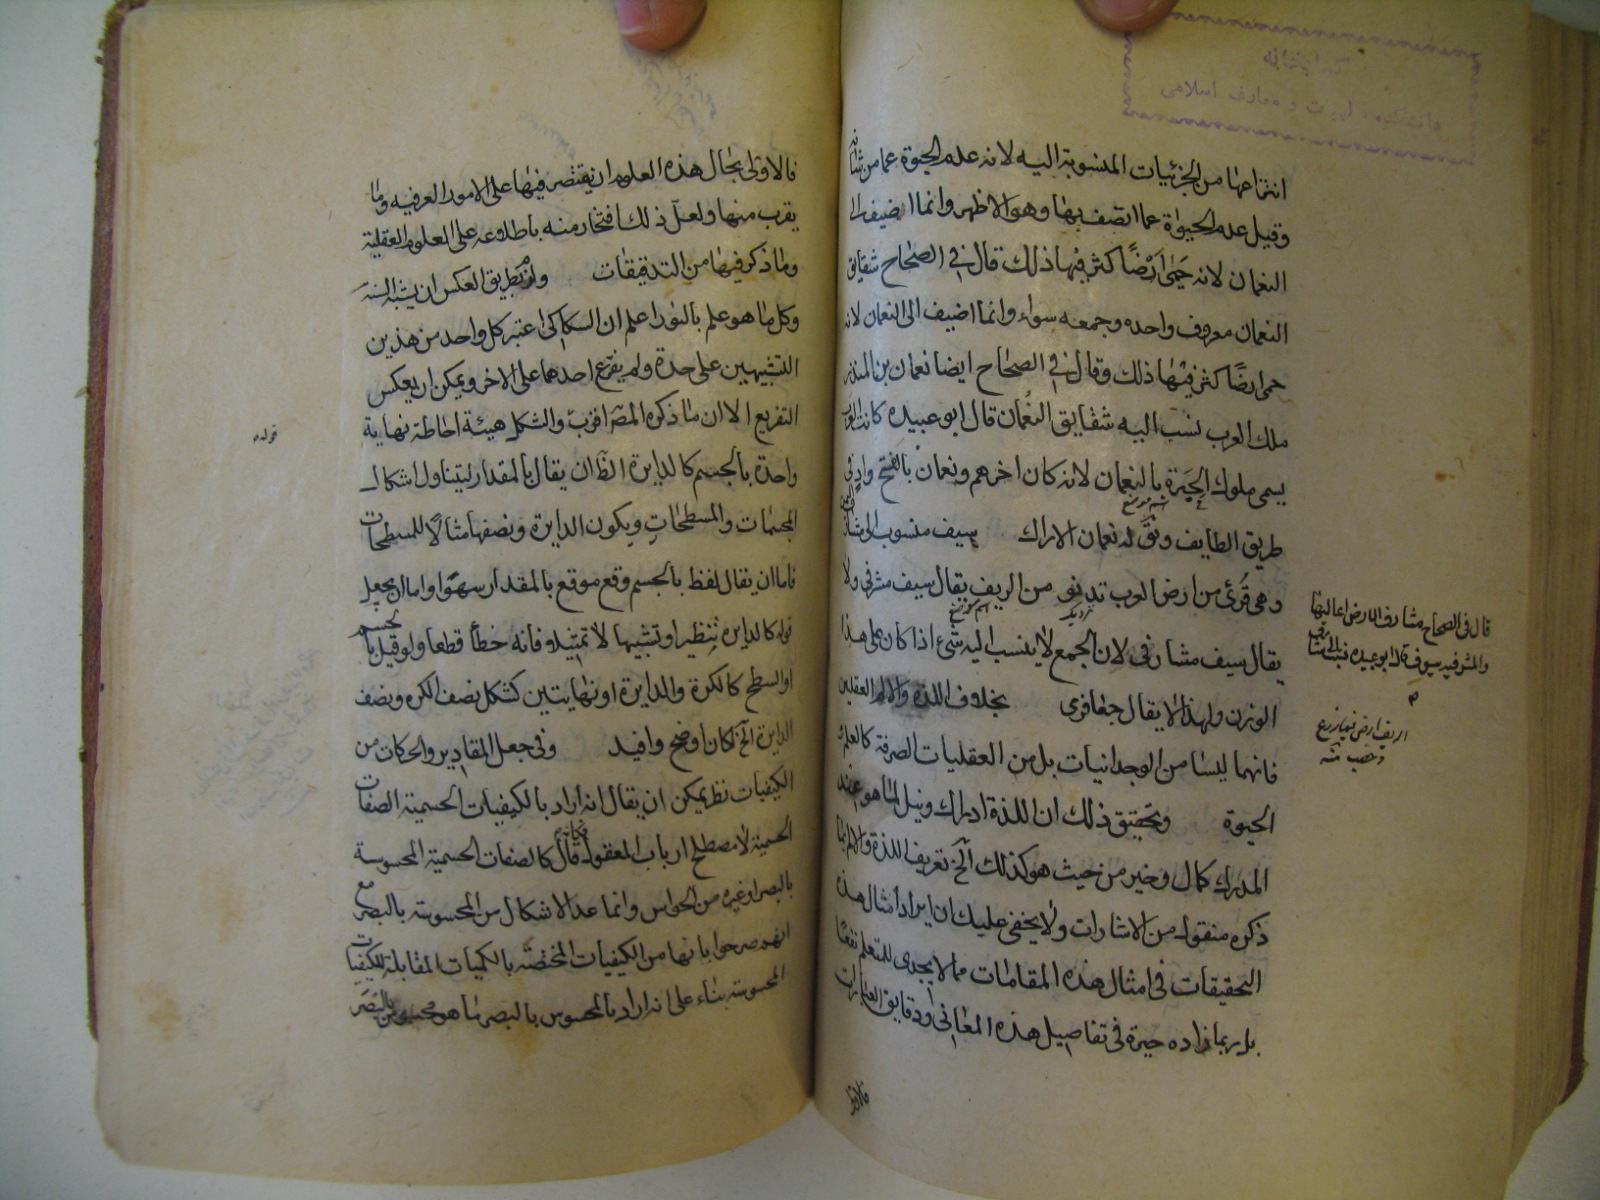 کتابخانه
دانشکده الهیات و معارف اسلامی
انتزاعها من الجزئیات المنسوبة الیه لانه عدم الحیوة عما من شانه
وقیل عدم الحیوة عما اتصف بها وهو الاظهر وانما اضیف الی
النعمان لانه حمی ارضًا کثر فیها ذلک قال فی الصحاح شقایق
النعمان معروف واحده وجمعه سواء وانما اضیف الی النعمان لانه
حمی ارضًا کثر فیها ذلک وقال فی الصحاح ایضا نعمان بن المنذر
ملک العرب نسب الیه شقایق النعمان قال ابو عبیده کانت العرب
یسمی ملوک الحیرة بالنعمان لانه کان اخرهم ونعمان بالفتح واد فی
طریق الطایف ویقال له نعمان الاراک سیف منسوب الی مشارف
وهی قُرئ من ارض العرب تدنو من الریف یقال سیف مشرفی ولا
یقال سیف مشارفی لان الجمع لا ینسب الیه شیء اذا کان علی هذا
الوزن ولهذا لا یقال جعافری بخلاف اللذة والالم العقلین
فانهما لیسا من الوجدانیات بل من العقلیات الصرفة کالعلم و
الحیوة وتحقیق ذلک ان اللذة ادراک ونیل لما هو عند
المدرک کمال وخیر من حیث هو کذلک الخ تعریف اللذة والالم بما
ذکره منقول من الاشارات ولا یخفی علیک ان ایراد امثال هذه
التحقیقات فی امثال هذه المقامات مما لا یجدی للمتعلم نفعًا
بل ربما زاده حیرة فی تفاصیل هذه المعانی ودقایق العبارات
فالاولی
اسم موضع
نزدیک
اسم موضع
قال فی الصحاح مشارف الارض اعالیها
والمشرفیه سیوف قال ابو عبیده نسبت الی مشارف
اریف ارض فیها زرع
وخصب منه
فالاولی بحال هذه العلوم ان یقتصر فیها علی الامور العرفیه وما
یقرب منها ولعل ذلک افتخار منه باطلاعه علی العلوم العقلیة
وما ذکر فیها من التدقیقات ولو بطریق العکس ان یشبه السنة
وکل ما هو علم بالنور اعلم ان السکاکی اعتبر کل واحد من هذین
التشبیهین علی حدة ولم یفرع احدهما علی الاخر ویمکن ان یعکس
التفریع الا ان ما ذکره المص اقرب والشکل هیئة احاطة نهایة
قوله
واحدة بالجسم کالدایرة الظ ان یقال بالمقدار لیتناول اشکال
المجسمات والمسطحات ویکون الدایرة ونصفها مثالًا للمسطحات
فاما ان یقال لفظ بالجسم وقع موقع بالمقدار سهوًا واما ان یجعل
قوله کالدایرة تنظیرا وتشبیها لا تمثیلا فانه خطأ قطعا ولو قیل بالجسم
او السطح کالکرة والدایرة او نهایتین کشکل نصف الکره ونصف
الدایرة الخ لکان اوضح وافید وفی جعل المقادیر والحرکات من
الکیفیات نظر یمکن ان یقال انه اراد بالکیفیات الجسمیة الصفات
الجسمیة لا مصطلح ارباب المعقول فکانه قال کالصفات الجسمیة المحسوسة
بالبصر او غیره من الحواس وانما عد الاشکال من المحسوسة بالبصر مع
انهم صرحوا بانها من الکیفیات المختصة بالکمیات المقابلة للکیفیات
المحسوسة بناء علی انه اراد بالمحسوس بالبصر ما هو محسوس بالبصر